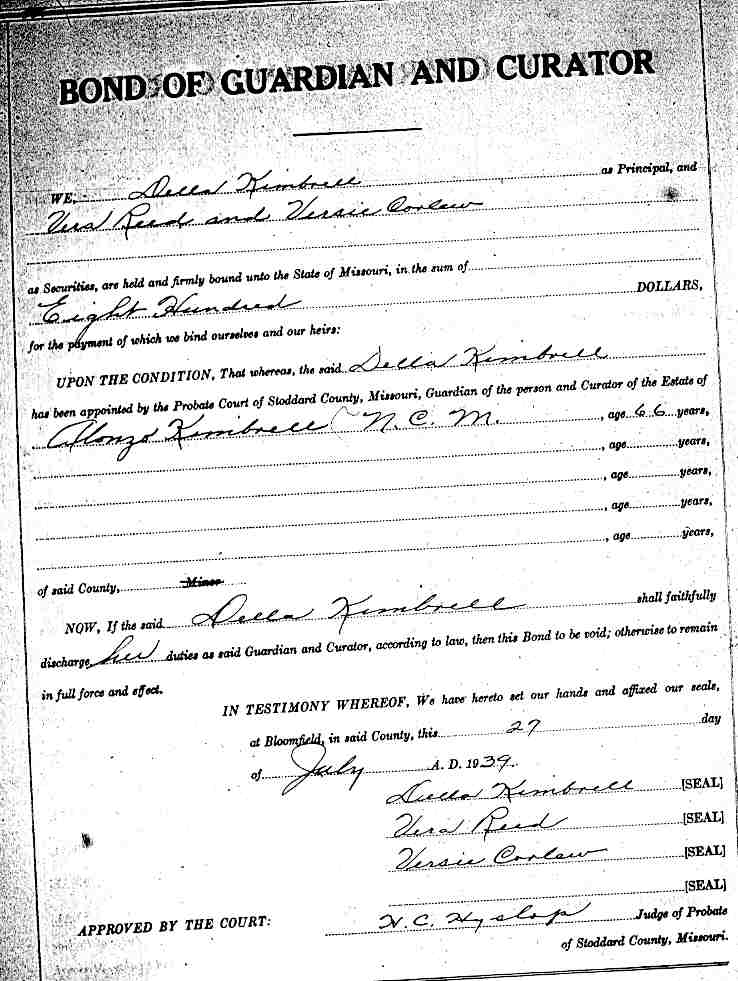 BOND OF GUARDIAN AND CURATOR
WE, Della Kimbrell as Principal, and
Vera Reed and Versie Corlew
as Securities, are held and firmly bound unto the State of Missouri, in the sum of
Eight Hundred DOLLARS,
for the payment of which we bind ourselves and our heirs:
UPON THE CONDITION, That whereas, the said Della Kimbrell
has been appointed by the Probate Court of Stoddard County, Missouri, Guardian of the person and Curator of the Estate of
Alonzo Kimbrell N. C. M. , age 66 years,
, age years,
, age years,
, age years,
, age years,
of said County, Minor
NOW, If the said Della Kimbrell shall faithfully
discharge her duties as said Guardian and Curator, according to law, then this Bond to be void; otherwise to remain
in full force and effect.
IN TESTIMONY WHEREOF, We have hereto set our hands and affixed our seals,
at Bloomfield, in said County, this 27 day
of July A. D. 1939.
Della Kimbrell [SEAL]
Vera Reed [SEAL]
Versie Corlew [SEAL]
[SEAL]
APPROVED BY THE COURT: H. C. Hyslop Judge of Probate
of Stoddard County, Missouri.